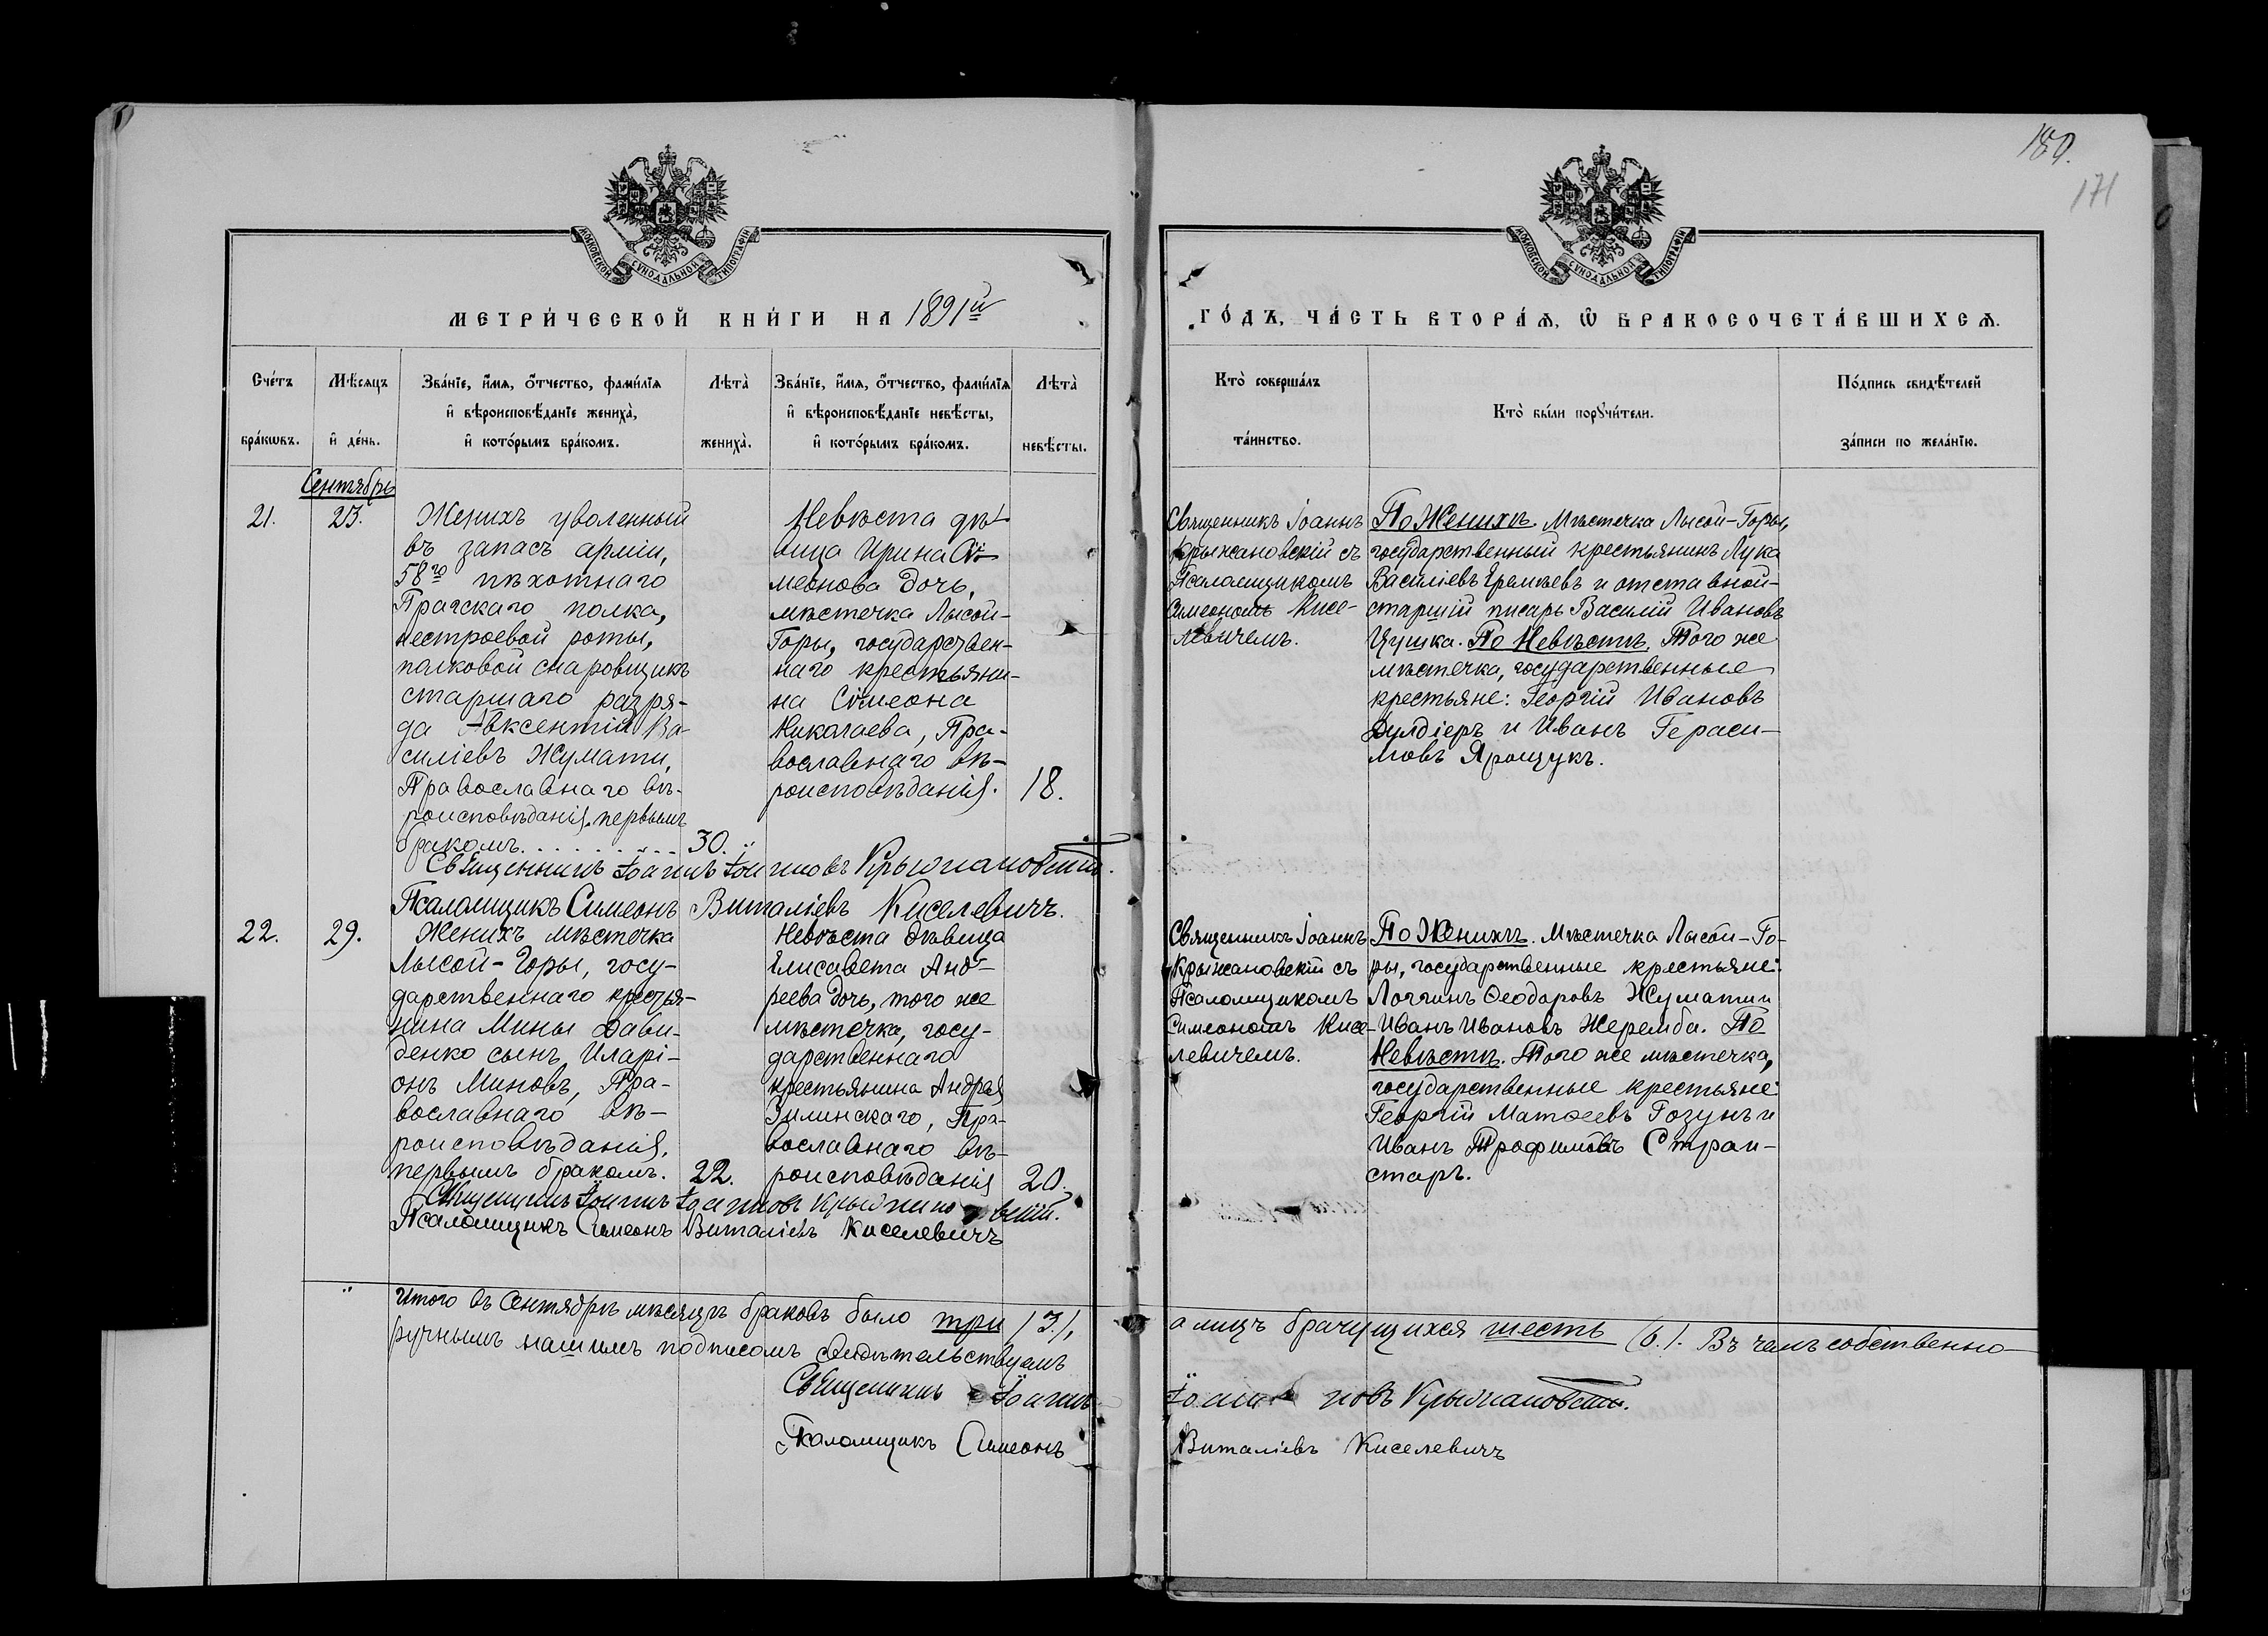 180.
171
МОСКОВСКОЙ СѴНОДАЛЬНОЙ ТИПОГРАФІИ
МОСКОВСКОЙ СѴНОДАЛЬНОЙ ТИПОГРАФІИ
МЕТРИ́ЧЕСКОЙ КНИ́ГИ НА 1891й
ГО́ДЪ, ЧА́СТЬ ВТОРА́Ѧ, Ѽ БРАКОСОЧЕТА́ВШИХСѦ.
Сче́тъ
бра́кѡвъ.
Мѣ́сѧцъ
и҆ де́нь.
Зва́нїе, и҆́мѧ, ѻ҆́тчество, фами́лїѧ
и҆ вѣроисповѣ́данїе жениха̀,
и҆ кото́рымъ бра́комъ.
Лѣта̀
жениха̀.
Зва́нїе, и҆́мѧ, ѻ҆́тчество, фами́лїѧ
и҆ вѣроисповѣ́данїе невѣ́сты,
и҆ кото́рымъ бра́комъ.
Лѣта̀
невѣ́сты.
Кто̀ соверша́лъ
та́инство.
Кто̀ бы́ли порꙋчи́тели.
По́дпись свидѣ́телей
за́писи по жела́нїю.
Сентябрь
21.
23.
Женихъ уволенный
въ запасъ арміи,
58го пѣхотнаго
Прагскаго полка,
нестроевой роты,
полковой снаровщикъ
старшаго разря-
да Авксентій Ва-
силіевъ Жумати,
Православнаго вѣ-
роисповѣданія, первымъ
бракомъ. . . . . . . . . 30.
Невѣста дѣ-
вица Ирина Си-
меонова дочь,
мѣстечка Лысой-
Горы, государствен-
наго крестьяни-
на Симеона
Николаева, Пра-
вославнаго вѣ-
роисповѣданія. 18.
Священникъ Іоаннъ
Крыжановскій съ
Псаломщикомъ
Симеономъ Кисе-
левичемъ.
По Женихѣ. Мѣстечка Лысой-Горы,
государственный крестьянинъ Лука
Василіевъ Еремѣевъ и отставной-
старшій писарь Василій Ивановъ
Цушка. По Невѣстѣ. Того же
мѣстечка, государственные
крестьяне: Георгій Ивановъ
Дулдіеръ и Иванъ Гераси-
мовъ Ярощукъ.
Священникъ Іоаннъ Іоанновъ Крыжановскій.
Псаломщикъ Симеонъ Виталіевъ Киселевичъ.
22.
29.
Женихъ мѣстечка
Лысой-Горы, госу-
дарственнаго крестья-
нина Мины Дави-
денко сынъ, Иларі-
онъ Миновъ, Пра-
вославнаго вѣ-
роисповѣданія,
первымъ бракомъ. 22.
Невѣста дѣвица
Елисавета Анд-
реева дочь, того же
мѣстечка, госу-
дарственнаго
крестьянина Андрея
Зилинскаго, Пра-
вославнаго вѣ-
роисповѣданія 20.
Священникъ Іоаннъ
Крыжановскій съ
Псаломщикомъ
Симеономъ Кисе-
левичемъ.
По Женихѣ. Мѣстечка Лысой-Го-
ры, государственные крестьяне:
Логгинъ Ѳеодоровъ Жумати и
Иванъ Ивановъ Жеремба. По
Невѣстѣ. Того же мѣстечка,
государственные крестьяне:
Георгій Матѳеевъ Гозунъ и
Иванъ Трофимовъ Страи-
старъ.
Священникъ Іоаннъ Іоанновъ Крыжановскій.
Псаломщикъ Симеонъ Виталіевъ Киселевичъ
Итого въ Сентябрѣ мѣсяцѣ браковъ было три /3/, а лицъ брачущихся шесть /6./. Въ чемъ собственно-
ручнымъ нашимъ подписомъ свидѣтельствуемъ
Священникъ Іоаннъ Іоанновъ Крыжановскій.
Псаломщикъ Симеонъ Виталіевъ Киселевичъ